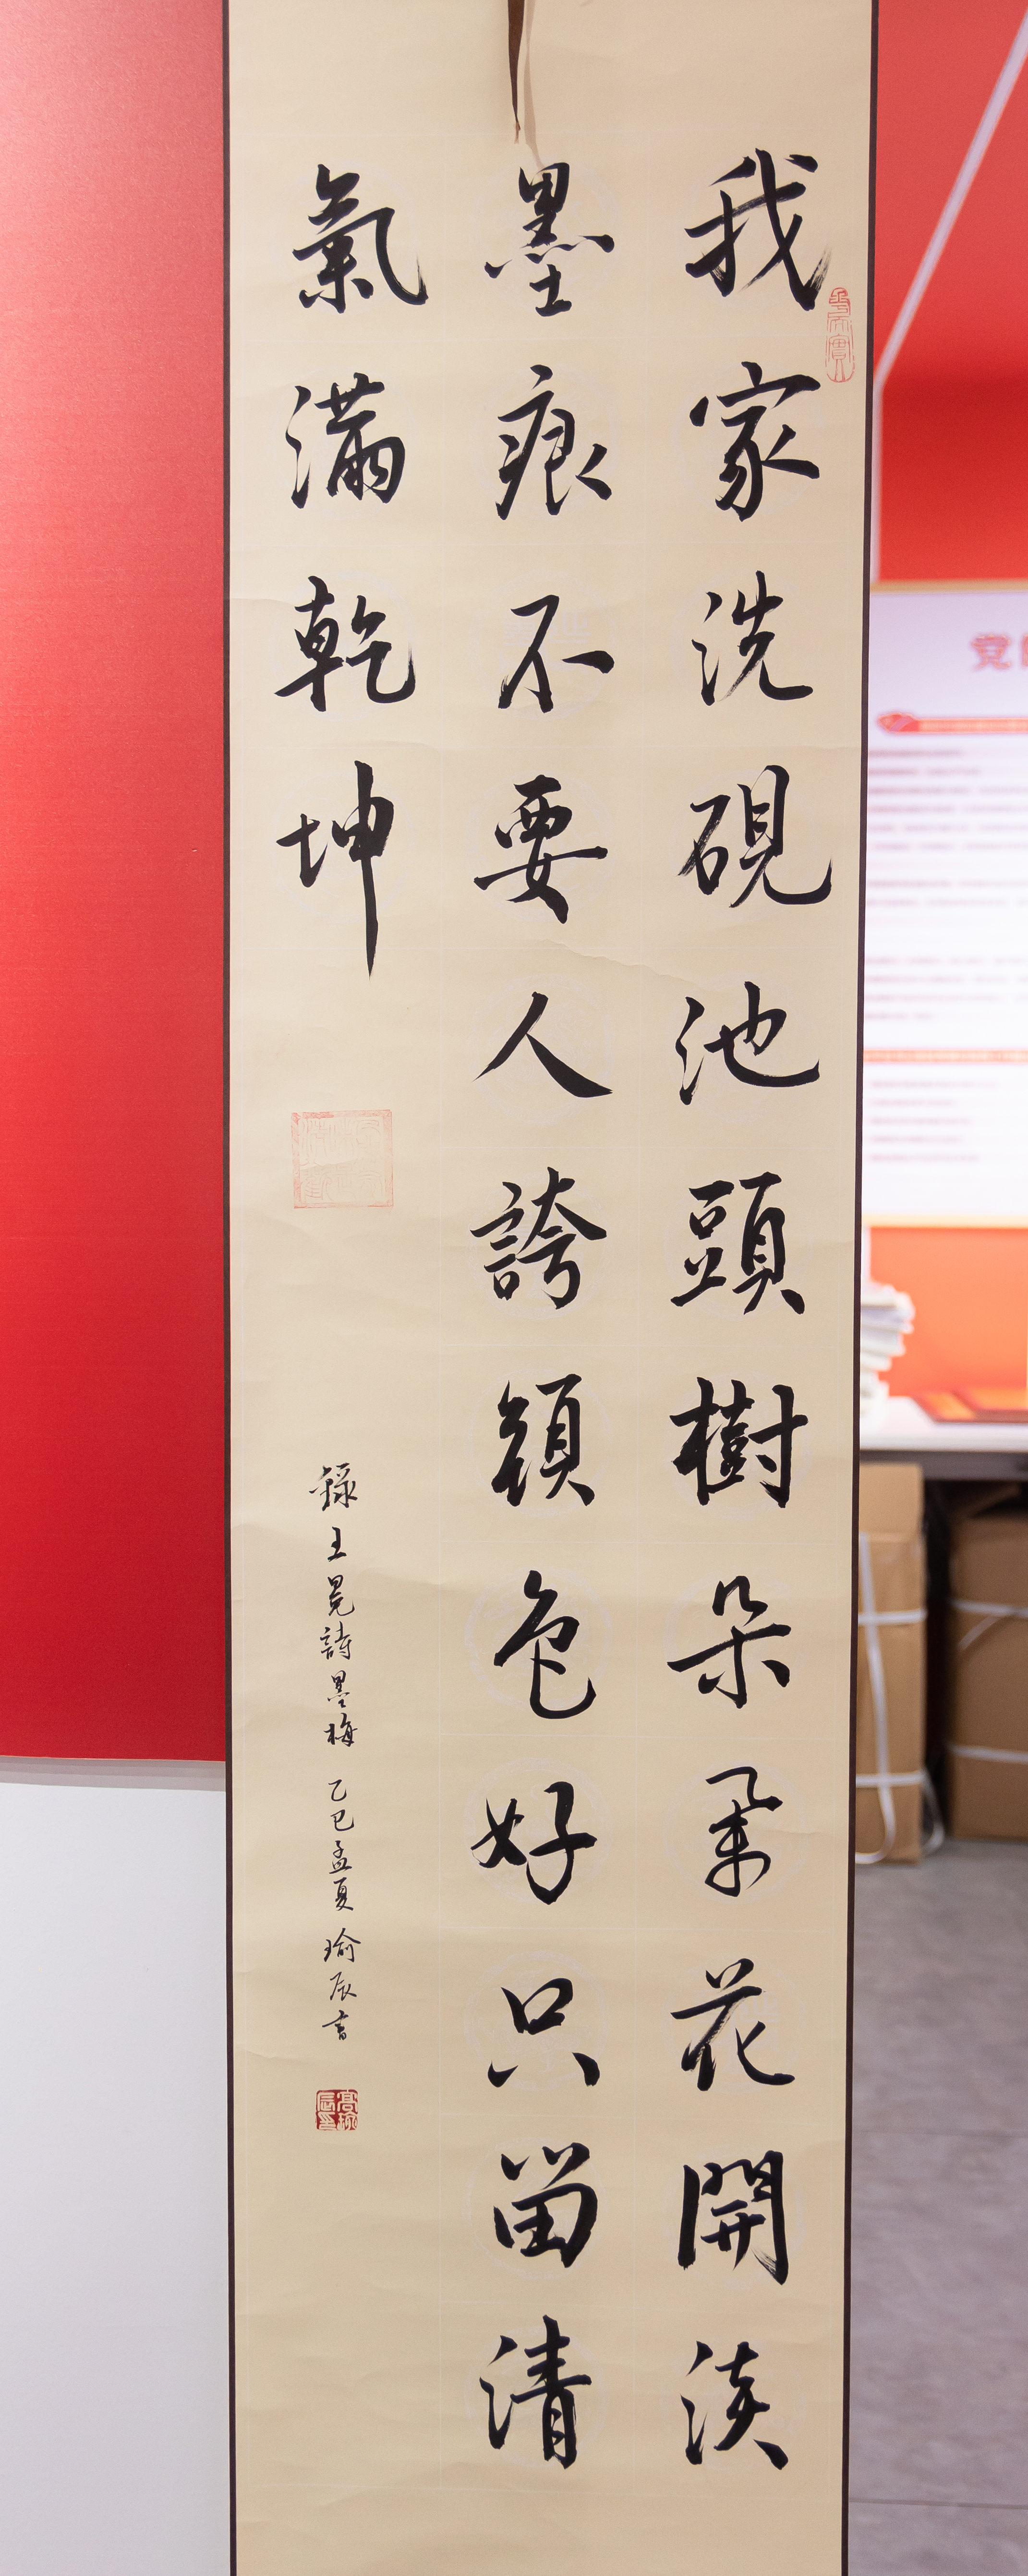 我家洗硯池頭樹朵朵花開淡
墨痕不要人誇顏色好只留清
氣滿乾坤
錄王冕詩墨梅 乙巳孟夏 瑜辰書
党